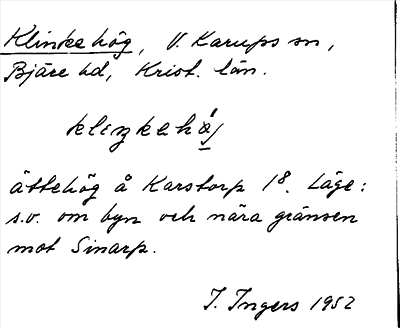 Klinkehög, V. Karups sn,
Bjäre hd, Krist. län.
ättehög å Karstorp 18. Läge:
s.v. om byn och nära gränsen
mot Sinarp.
I. Ingers 1952